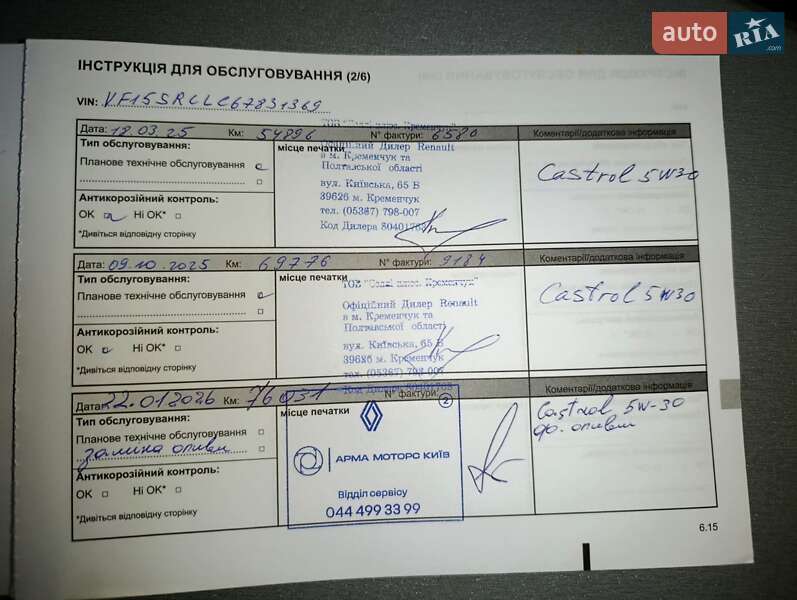 auto RIA .com
ІНСТРУКЦІЯ ДЛЯ ОБСЛУГОВУВАННЯ (2/6)
VIN: VF15SRCLC67831369
Дата: 18.03.25 Км: 54896 N° фактури: 6580 Коментарі/додаткова інформація
Тип обслуговування:
Планове технічне обслуговування
Антикорозійний контроль:
OK Ні OK*
*Дивіться відповідну сторінку
місце печатки
Офіційний Дилер Renault
в м. Кременчук та
Полтавської області
вул. Київська, 65 В
39626 м. Кременчук
тел. (05367) 798-007
Код Дилера
Castrol 5W30
Дата: 09.10.2025 Км: 69776 N° фактури: 9184 Коментарі/додаткова інформація
Тип обслуговування:
Планове технічне обслуговування
Антикорозійний контроль:
OK Ні OK*
*Дивіться відповідну сторінку
місце печатки
Офіційний Дилер Renault
в м. Кременчук та
Полтавської області
вул. Київська, 65 В
39626 м. Кременчук
тел. (05367) 798-007
Код Дилера
Castrol 5W30
Дата: 22.01.2026 Км: 76031 N° фактури: Коментарі/додаткова інформація
Тип обслуговування:
Планове технічне обслуговування
заміна оливи
Антикорозійний контроль:
OK Ні OK*
*Дивіться відповідну сторінку
місце печатки
2
АРМА МОТОРС КИЇВ
Відділ сервісу
044 499 33 99
Castrol 5W-30
оливи
6.15